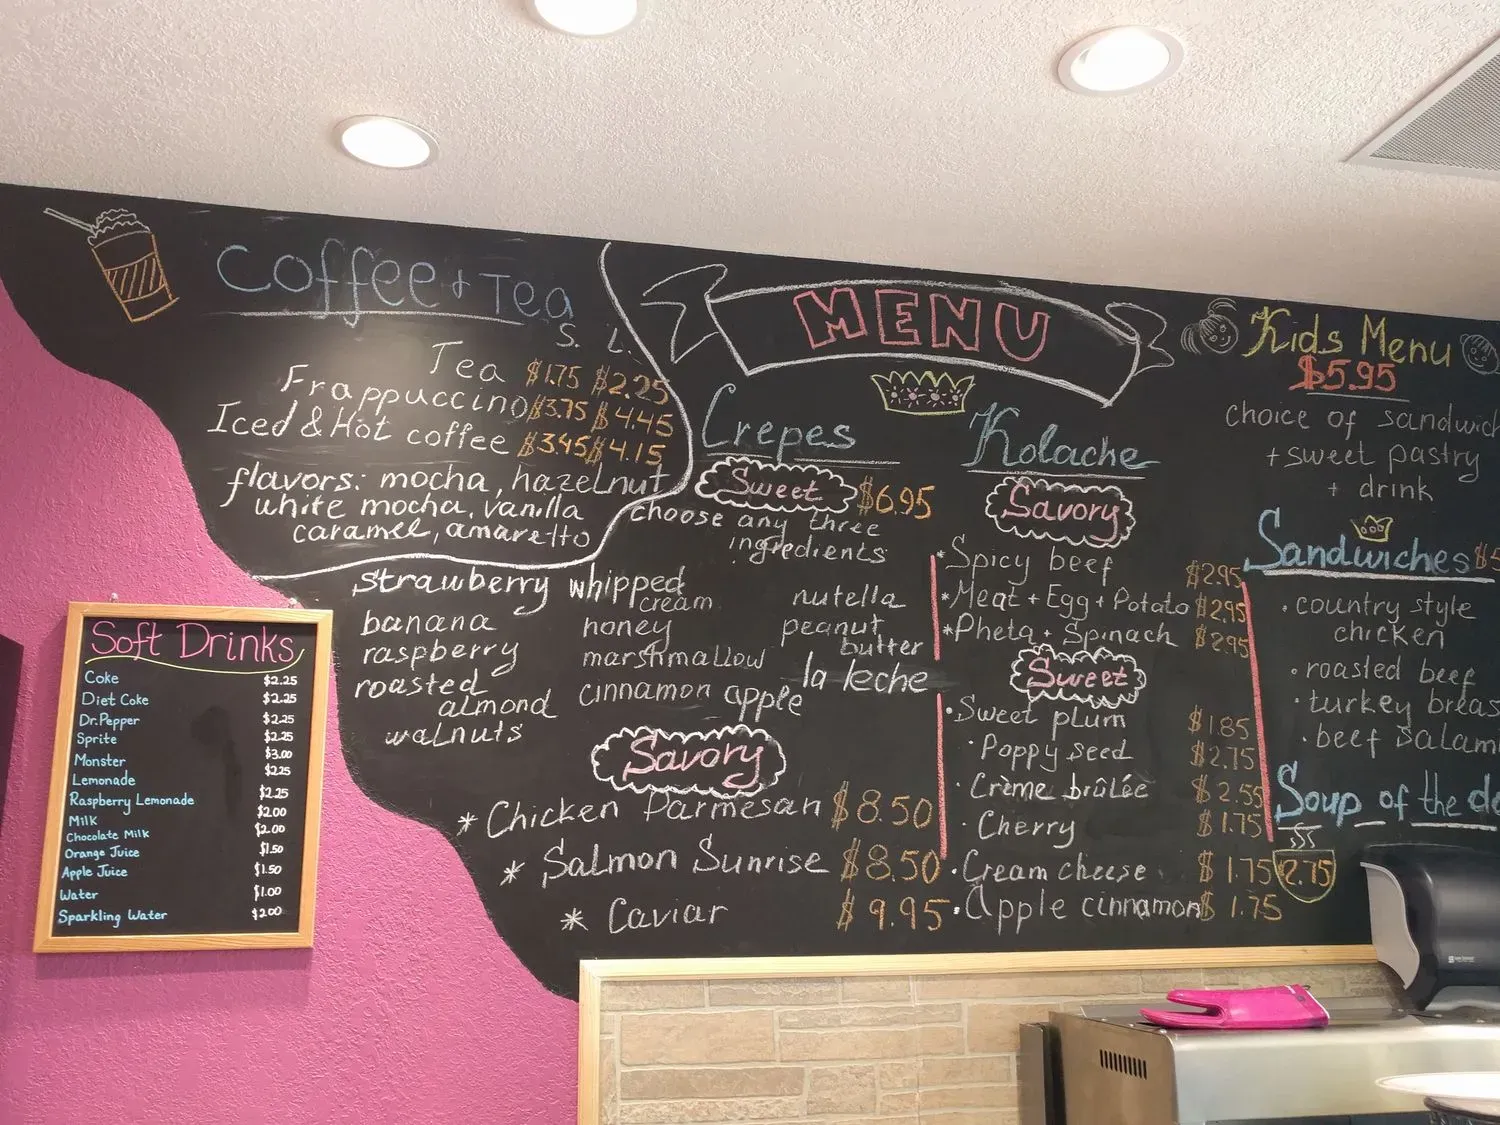 Coffee + Tea
S. L.
Tea $1.75 $2.25
Frappuccino $3.75 $4.45
Iced & Hot coffee $3.45 $4.15
flavors: mocha, hazelnut
white mocha, vanilla
caramel, amaretto
MENU
Crepes
Sweet $6.95
choose any three
ingredients
strawberry
banana
raspberry
roasted
almond
walnuts
whipped
cream
honey
marshmallow
cinnamon apple
nutella
peanut
butter
la leche
Savory
* Chicken Parmesan $8.50
* Salmon Sunrise $8.50
* Caviar $9.95
Kolache
Savory
* Spicy beef $2.95
* Meat + Egg + Potato $2.95
* Pheta + Spinach $2.95
Sweet
• Sweet plum $1.85
• Poppy seed $2.75
• Crème brûlée $2.55
• Cherry $1.75
• Cream cheese $1.75
• Apple cinnamon $1.75
Kids Menu
$5.95
choice of sandwich
+ sweet pastry
+ drink
Sandwiches $5
• country style
chicken
• roasted beef
• turkey breas
• beef salam
Soup of the da
2.75
Soft Drinks
Coke $2.25
Diet Coke $2.25
Dr.Pepper $2.25
Sprite $2.25
Monster $3.00
Lemonade $2.25
Raspberry Lemonade $2.25
Milk $2.00
Chocolate Milk $2.00
Orange Juice $1.50
Apple Juice $1.50
Water $1.00
Sparkling Water $2.00